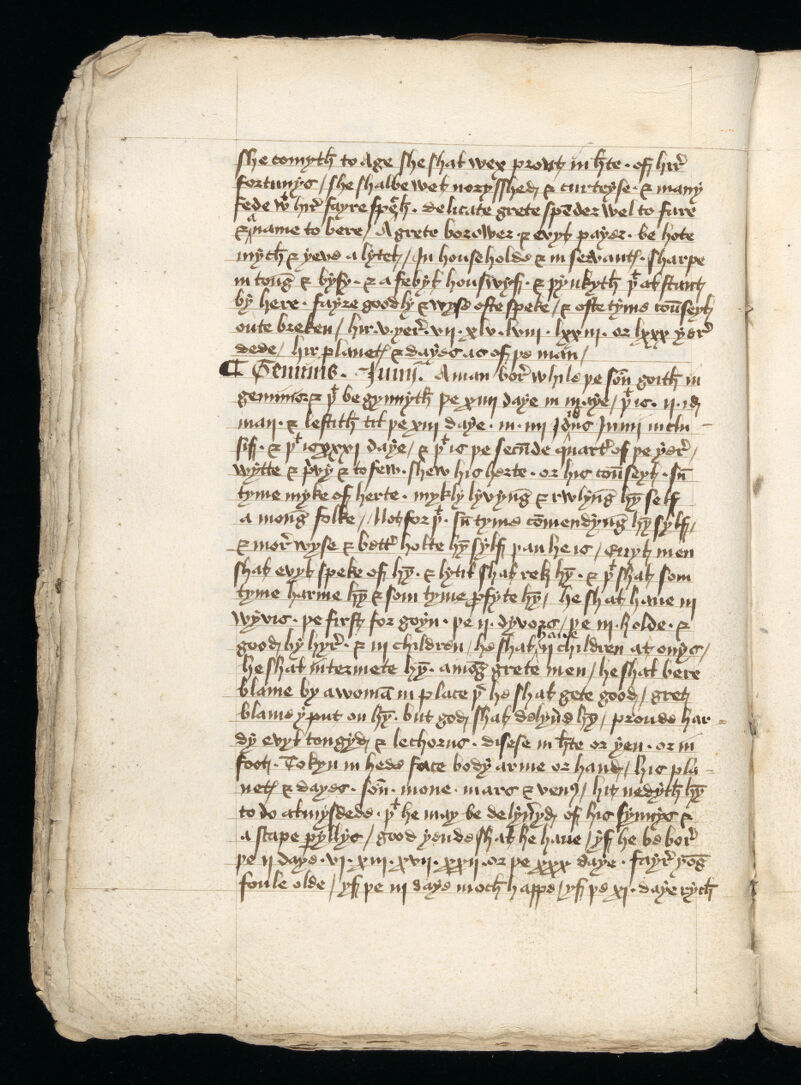 she comyth to Age she shal wex prout in hte · of hir
fortunys / she shalbe wel noryssched & curteyse · & many
fede wt hir fayre spech · delicate grete speder wel to fare
& a name to bere / A grete borower · & evyl payer · be hote
myth & yeve a lytel / In householde & in servant · sharpe
in tong & bysy · & a febyl houswyf · & þynkyth þt at stant
by here · fayre goodly & wyse ofte speke / & ofte tyme counseyl
oute breken / hir v yer · vii · xlv · lviii · lxxiii · or lxxx yer
dede / hir planet & dayes as of þe man /
Geminis · Junii · A man bor while þe son goith in
geminis & þt begynnyth þe xiiii daye in maye / þt is · ii · id
maii · & lestith til þe xiii daye · in · iiii Idus Junii inclu
sif · & þt is xxxi daye / & þt is þe secunde quart of þe yer /
wytte & prvy & to few · shew his herte · or his counseyl · sū
tyme myke of herte · mykly lyvyng & rwlyng hy self
a mong folke // Not for þt · sū tyme comendyng hy sylf /
& mor wyse & bett holte hy sylf þan he is / Evyl men
shal evyl speke of hy · & lytil shal rek hy · & þt shal som
tyme harme hy & som tyme profyte hy / he shal haue iii
wyvis · þe first for goyn · þe ii · dyvors / þe iii · holde · &
good by hyr · & iii children / he shal haue ii children at onys /
he shal intermete hy · among grete men / he shal bere
blame by a woma in place þr he shal gete good / gret
blame yput on hy · but god shal delyue hy / proude har
dy evyl tongyd & lechorus · disese in hte or yen · or in
foot · Tokyn in hede face body arme or hand / his pla
net & dayes · son · mone · mars & ven9 / hit nedyth hy
to do almysdede · þt he may be delyuyd of his synnys &
a scape pyllys / good yende shal he haue / yf he be bor
þe ii daye · vi · xiii · xvii · xxii · or þe xxx daye · fayr yog
foule olde / yf þe iii daye moch happe / yf þe xi · daye rych